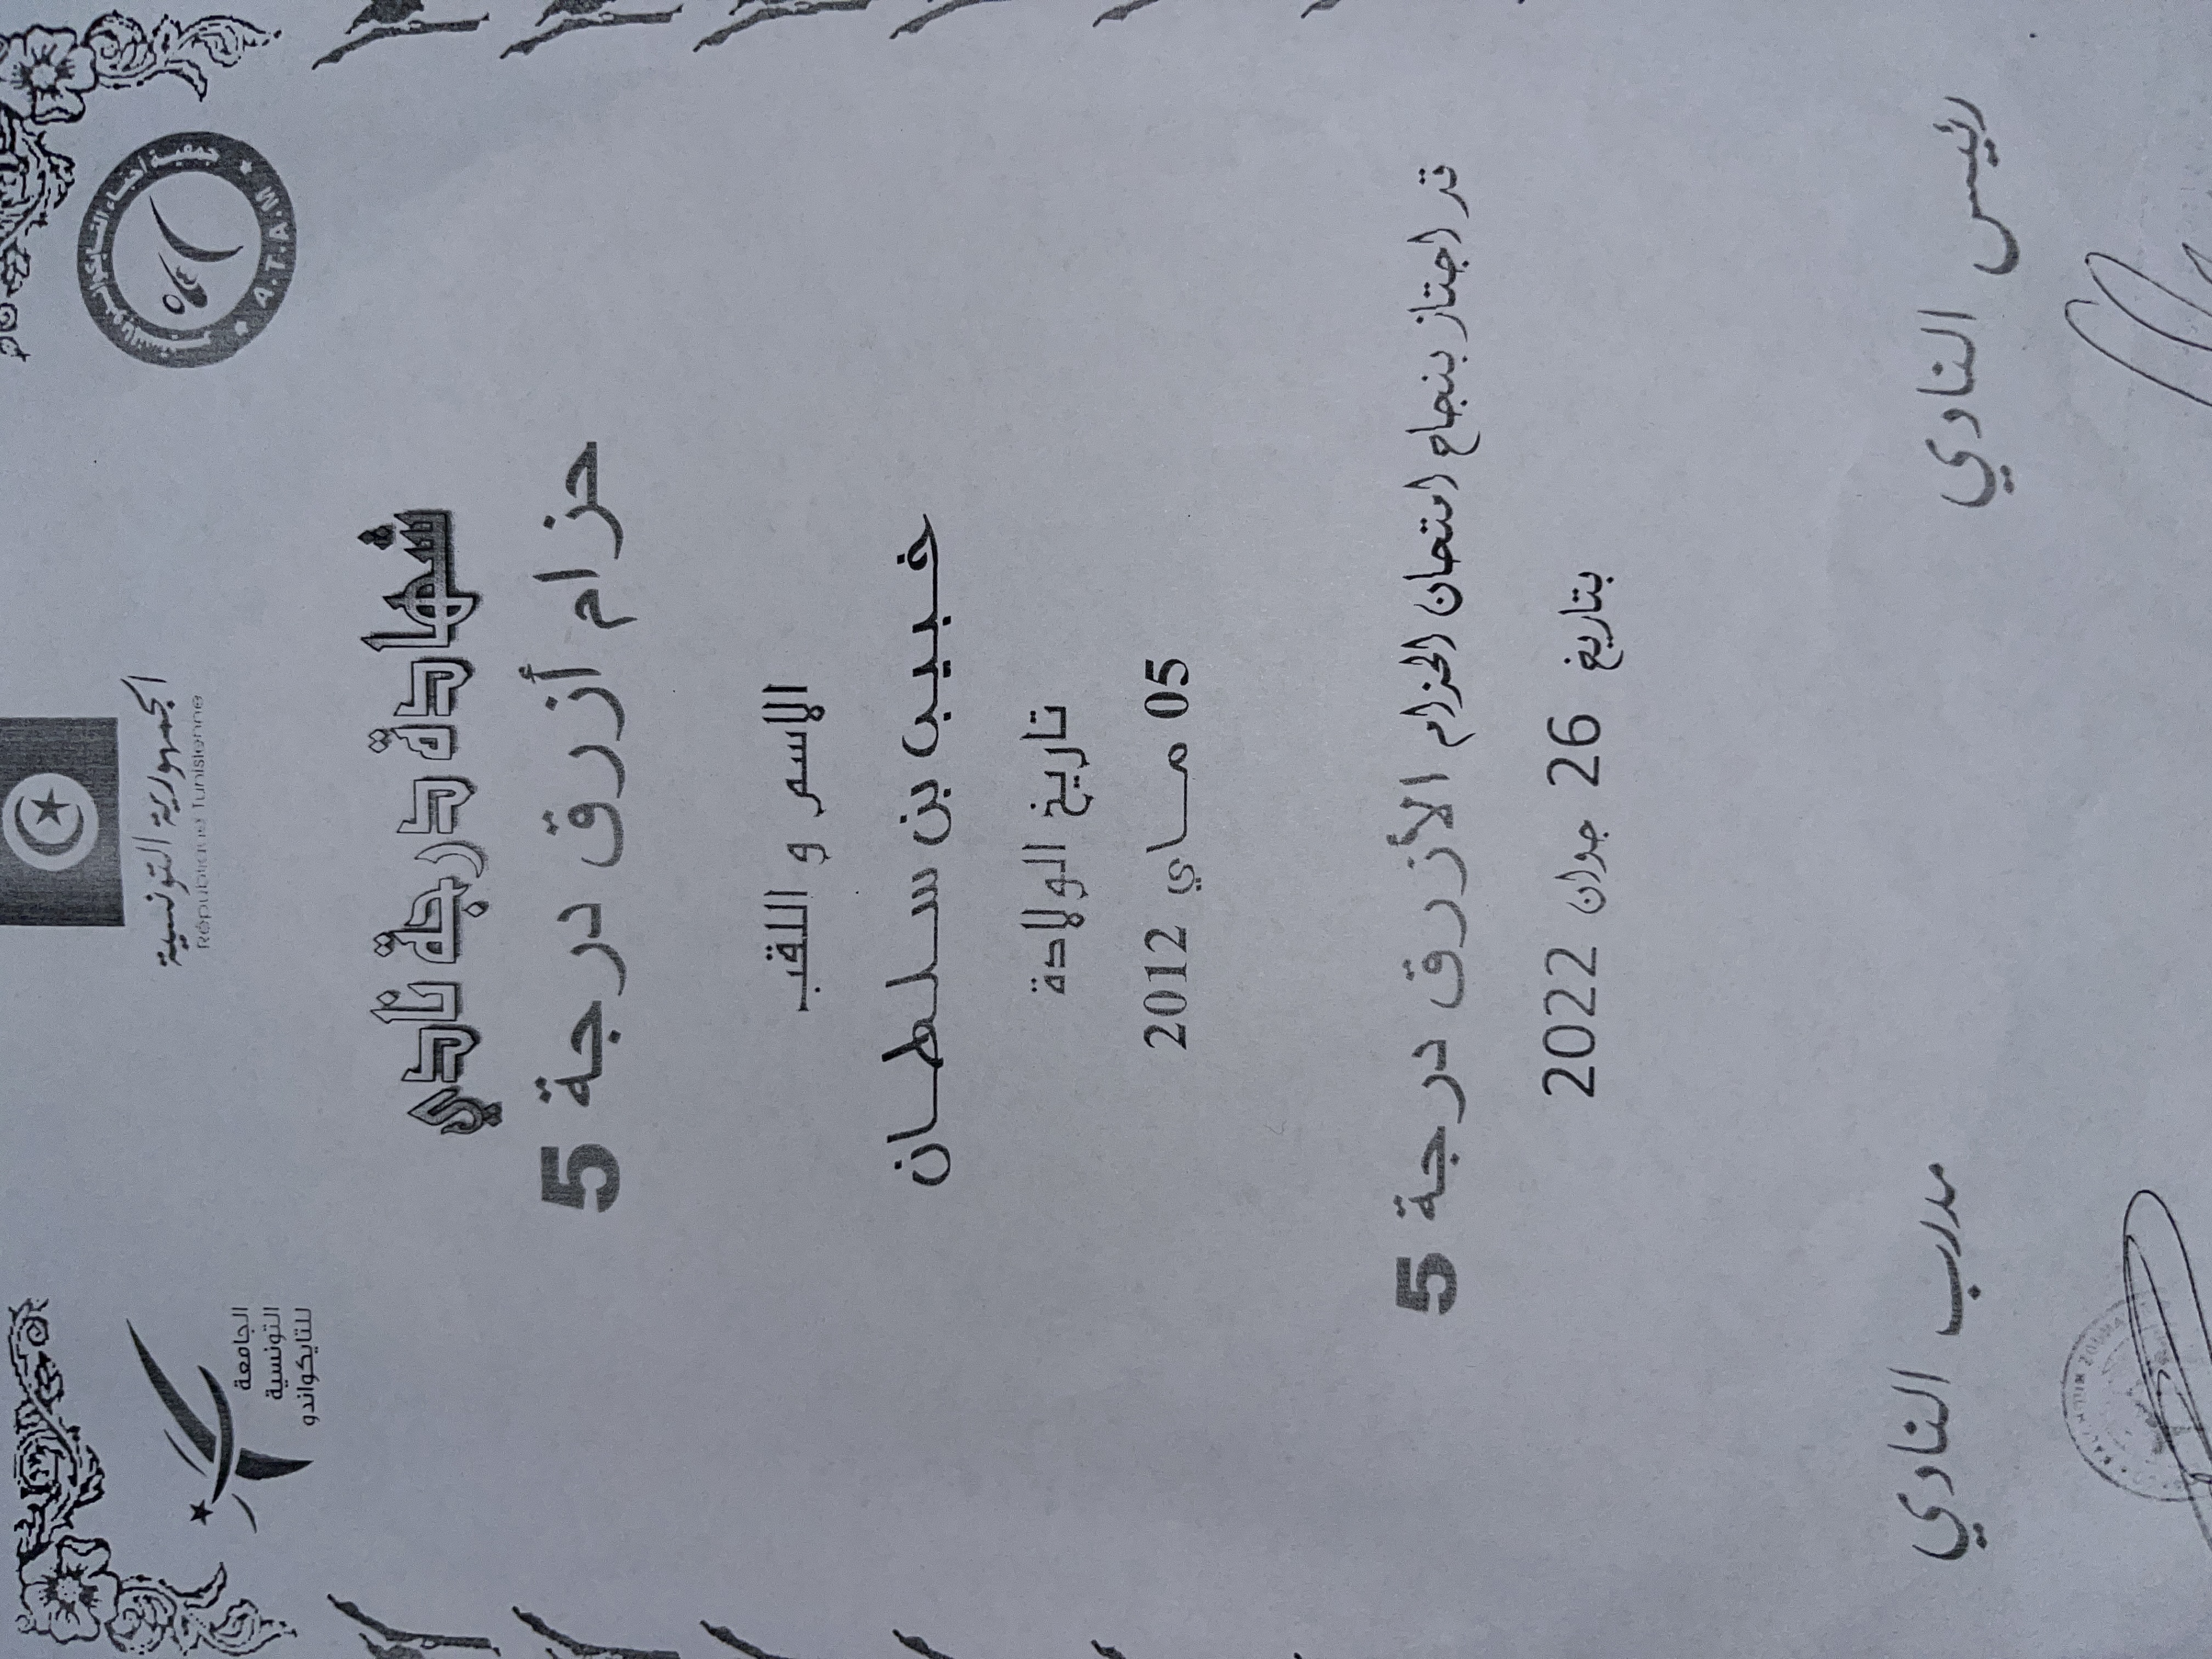 الجمهورية التونسية
République Tunisienne
جمعية أحباء التايكواندو
A.T.A.W
الجامعة
التونسية
للتايكواندو
شهادة درجة نادي
حزام أزرق درجة 5
الاسم و اللقب
خبيب بن سلطان
تاريخ الولادة
05 ماي 2012
قد اجتاز بنجاح امتحان الحزام الأزرق درجة 5
بتاريخ 26 جوان 2022
رئيس النادي
مدرب النادي